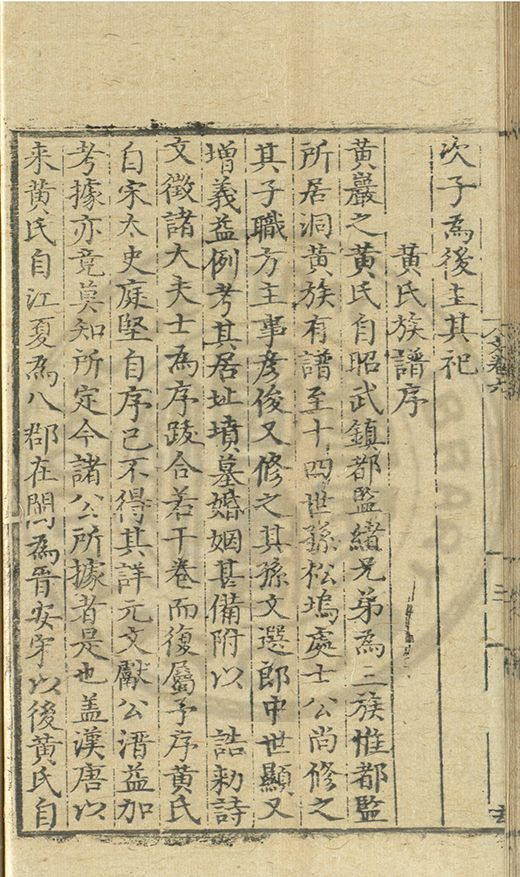 次子為後主其祀
黃氏族譜序
黃巖之黃氏自昭武鎮都監緒兄弟為三族惟都監
所居洞黃族有譜至十四世孫松塢處士公尚修之
其子職方主事彥俊又修之其孫文選郎中世顯又
增義益例考其居址墳墓婚姻甚備附以 誥勅詩
文徵諸大夫士為序跋合若干卷而復屬予序黃氏
自宋太史庭堅自序已不得其詳元文獻公溍益加
考據亦竟莫知所定今諸公所據者是也盖漢唐以
来黃氏自江夏為八郡在閩為晋安宋以後黃氏自
文卷六
三